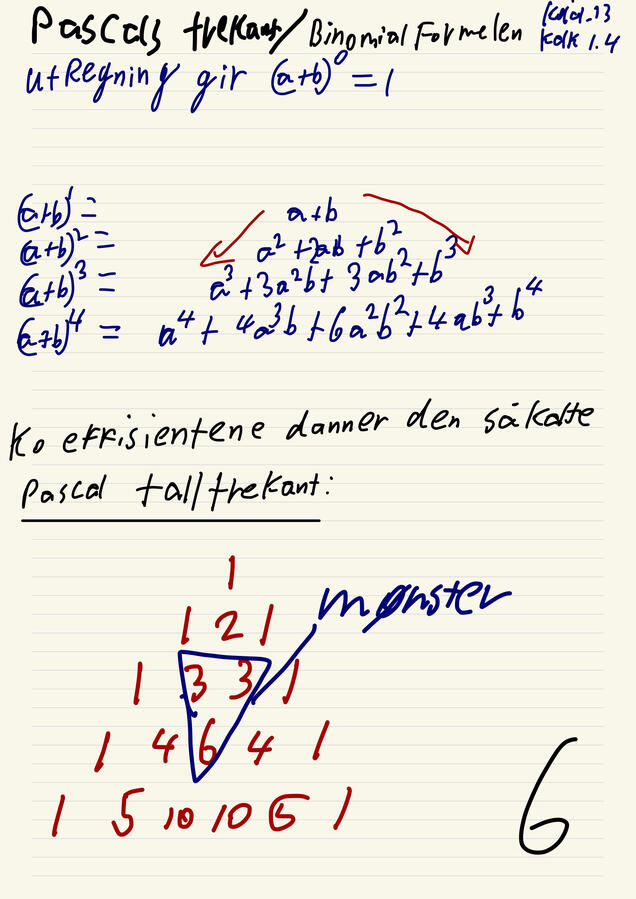 Pascals trekant/Binomial Formelen
Kalk 1.4
utRegning gir (a+b)^0 = 1
(a+b)^1 = a+b
(a+b)^2 = a^2 + 2ab + b^2
(a+b)^3 = a^3 + 3a^2b + 3ab^2 + b^3
(a+b)^4 = a^4 + 4a^3b + 6a^2b^2 + 4ab^3 + b^4
Koeffisientene danner den såkalte
Pascal talltrekant:
1
mønster
1 2 1
1 3 3 1
1 4 6 4 1
1 5 10 10 5 1
6